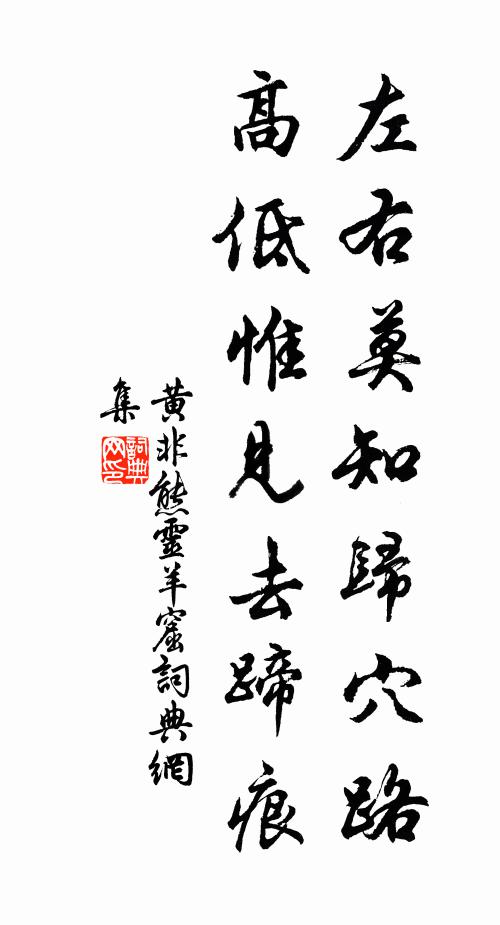 左右莫知歸穴路
高低惟見去蹄痕
黄非熊靈羊窟詞典網
集
詞典
网印